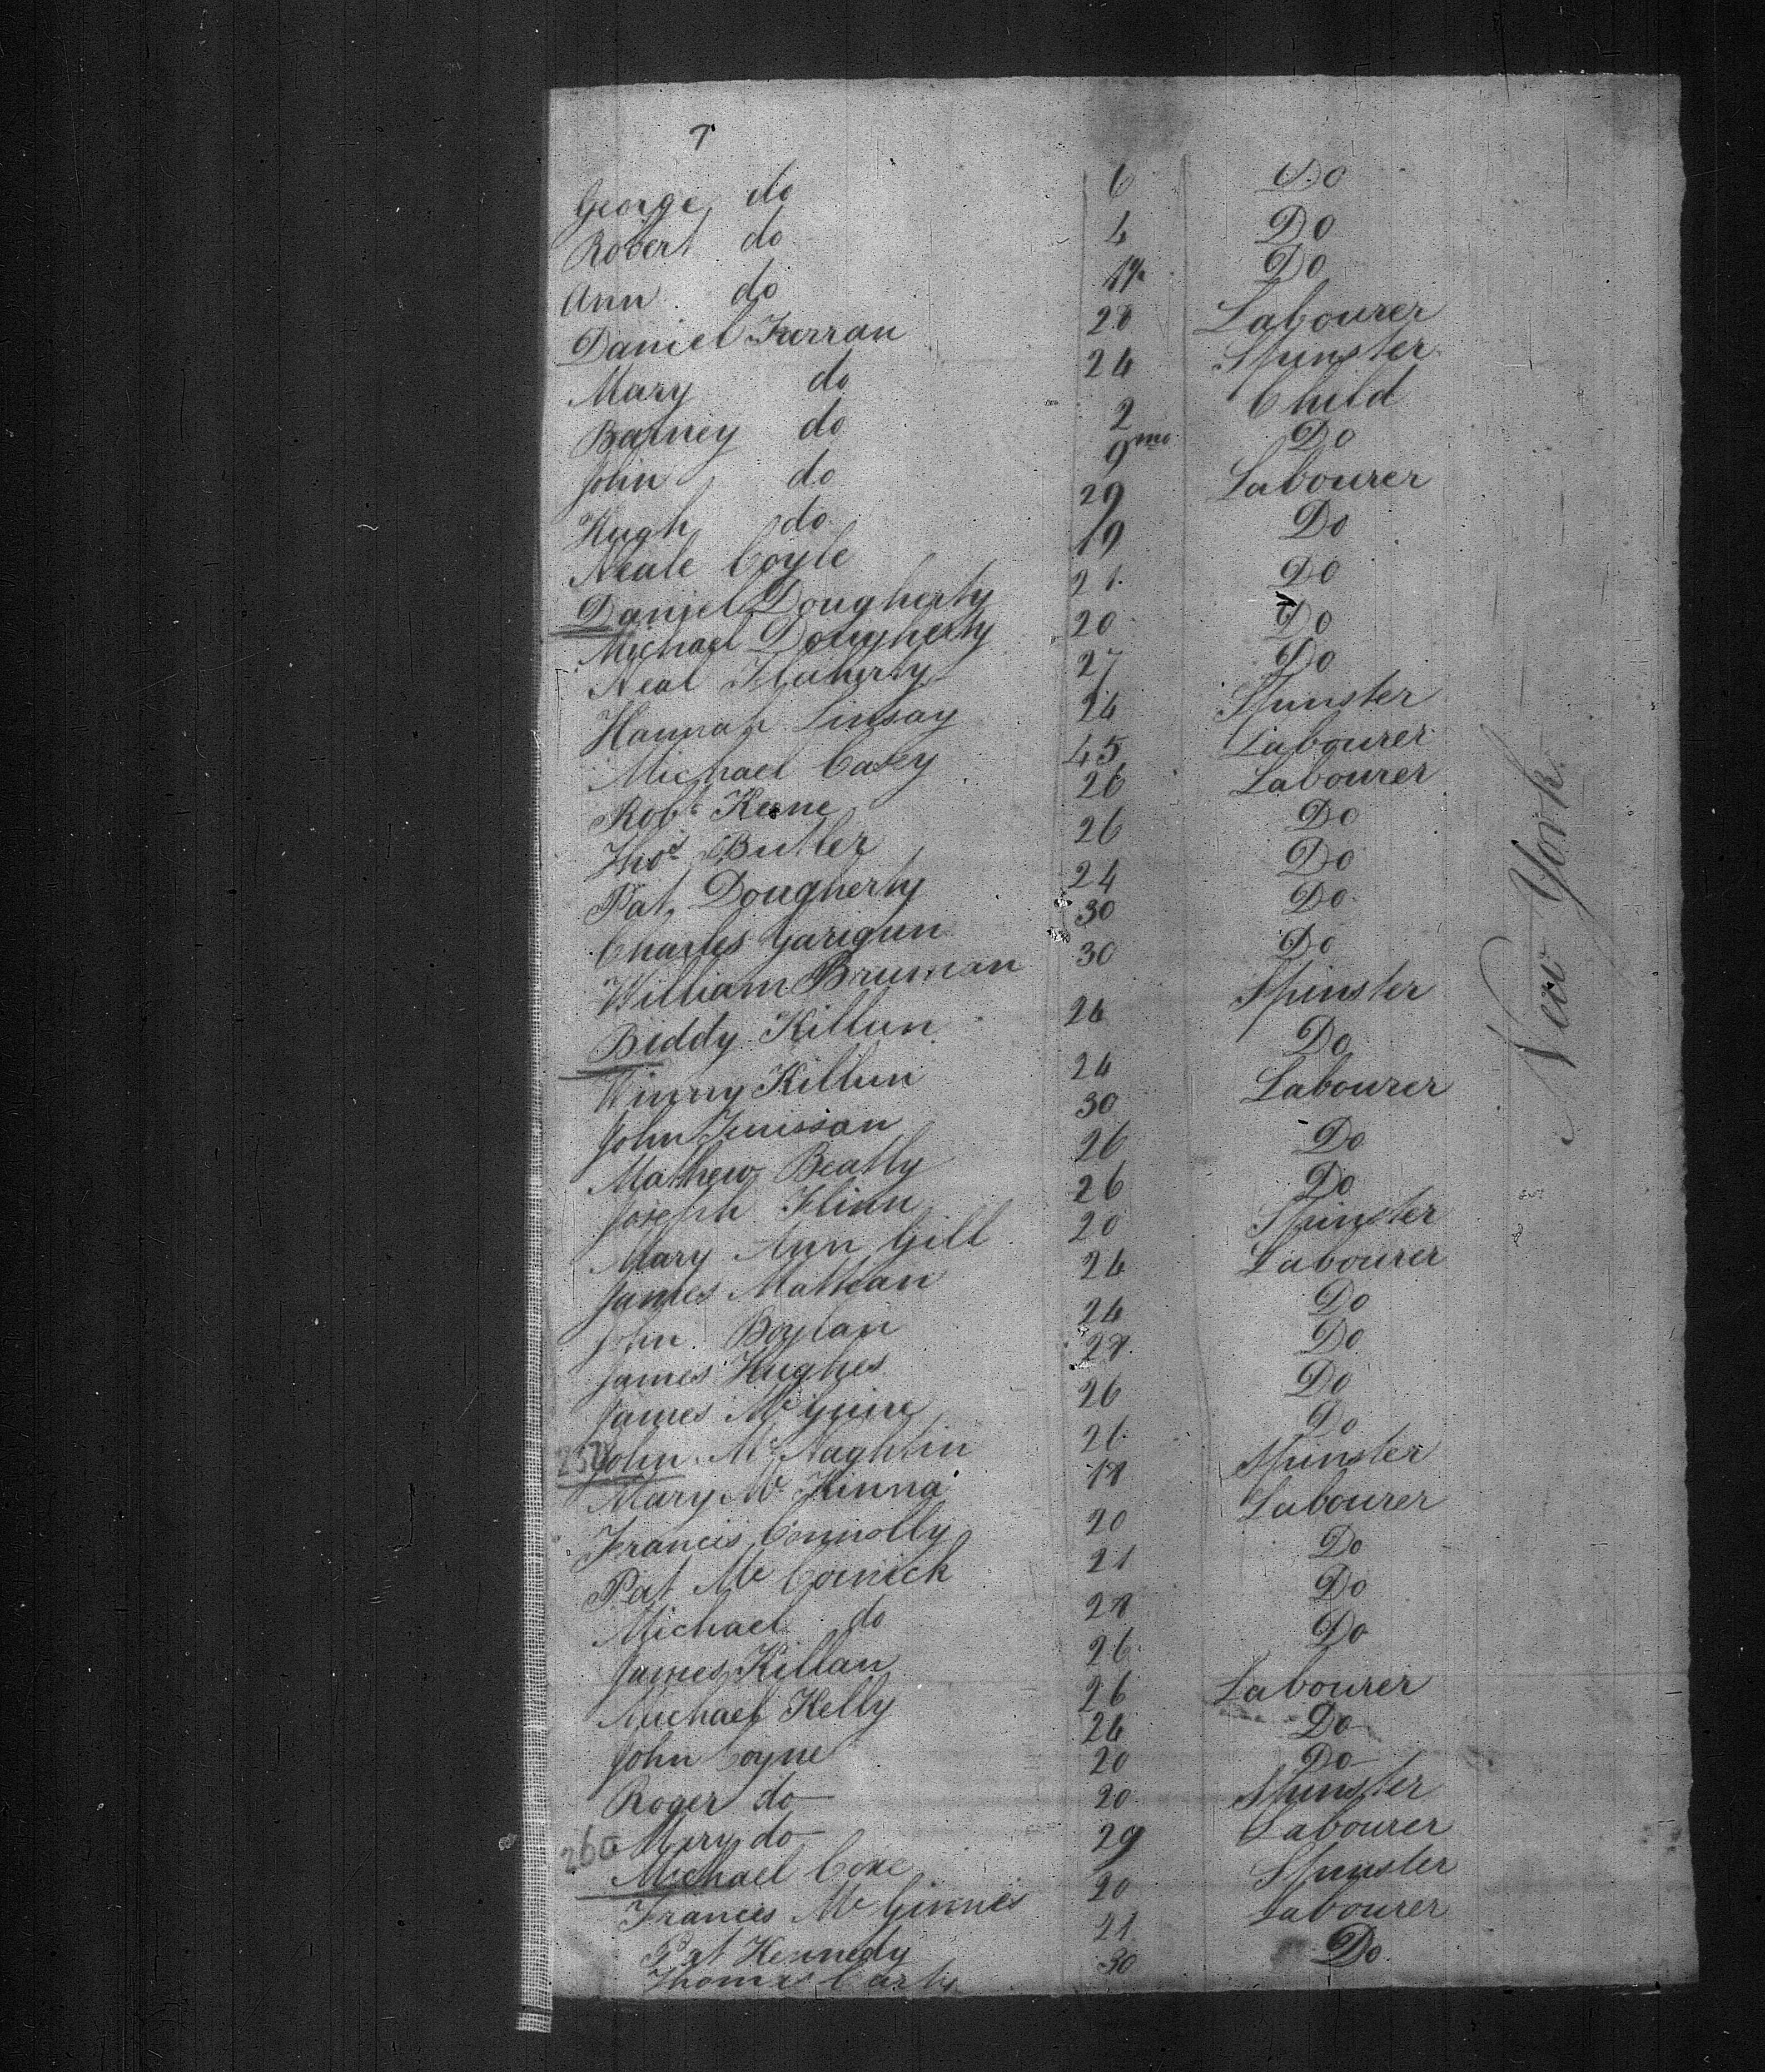 7
George do 6 Do
Robert do 4 Do
Ann do 1½ Do
Daniel Farran 28 Labourer
Mary do 24 Spinster
Barney do 2 Child
John do 9 mo Do
Hugh do 29 Labourer
Neale Coyle 19 Do
Daniel Dougherty 21 Do
Michael Dougherty 20 Do
Neal Flaherty 27 Do
Hannah Linsay 24 Spinster
Michael Casey 45 Labourer
Robt Keene 26 Labourer
Thos Butler 26 Do
Pat Dougherty 24 Do
Charles Garigun 30 Do
William Brunnan 30 Do
Biddy Killun 24 Spinster
Winny Killun 24 Do
John 30 Labourer
Mathew Beatty 26 Do
Joseph Flinn 26 Do
Mary Ann Gill 20 Spinster
James 24 Labourer
John Boylan 24 Do
James Hughes 28 Do
James McGuire 26 Do
John McNaghtin 26 Do
Mary McKinna 18 Spinster
Francis Connolly 20 Labourer
Pat McCormick 21 Do
Michael do 28 Do
James Killan 26 Do
Michael Kelly 26 Labourer
John Coyne 24 Do
Roger do 20 Do
260 Mary do 20 Spinster
Michael Coxe 29 Labourer
Frances McGinnes 20 Spinster
Pat Kennedy 21 Labourer
Thomas Carty 30 Do
New York